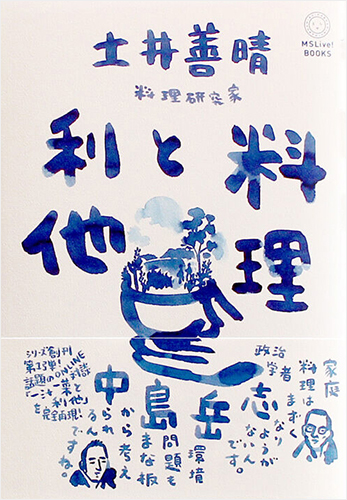 MSLive!
BOOKS
土井善晴
料理研究家
料理
と
利他
家庭
料理は
まずく
なり
ようが
ないん
です。
政治
学者
中島岳志
環境
問題も
まな板
から考え
られ
るん
ですね。
シリーズ創刊
第1弾!
話題のONLINE
対談
「一汁一菜と
利他」
を完全再現!